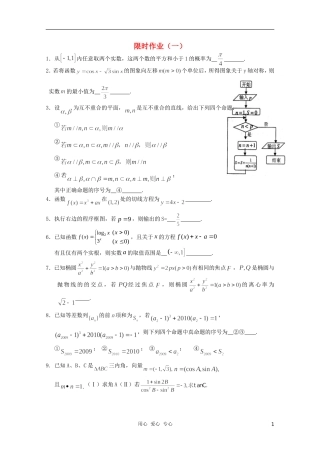 限时作业（一）
1．从[-1,1]内任意取两个实数，这两个数的平方和小于1的概率为
2．若将函数 y=cosx-√3sinx 的图象向左移m(m>0)个单位后，所得图象关于y轴对称，则
实数m的最小值为 2π/3 .
3．设α,β为互不重合的平面，m,n为互不重合的直线，给出下列四个命题
①
②
③
④
其中正确命题的序号为__④______.
4．函数 在(1,2)处的切线方程为 y=4x-2 .
5．执行右边的程序框图，若p=9，则输出的S=
6．已知函数 ，且关于x的方程f(x)+x-a=0
有且仅有两个实根，则实数a的取值范围是
7．已知椭圆x²/a²+y²/b²=1(a>b>0)与抛物线y²=2px(p>0)有相同的焦点F，P,Q是椭圆与
抛物线的的交点，若PQ经过焦点F，则椭圆x²/a²+y²/b²=1(a>b>0)的离心率为
√2-1 .
8．已知等差数列{aₙ}的前n项和为Sₙ，若(a₂-1)³+2010(a₂-1)=1，
(a₂₀₀₉-1)³+2010(a₂₀₀₉-1)=-1，则下列四个命题中真命题的序号为__②③____.
①S₂₀₀₉=2009； ②S₂₀₁₀=2010； ③a₂₀₀₉<a₂； ④S₂₀₀₉<S₂
9．已知A、B、C是△ABC三内角，向量m=(-1,√3),n=(cosA,sinA),
且m•n=1.（Ⅰ）求角A（Ⅱ）若(1+sin2B)/(cos²B-sin²B)
开始
输入p
n=1,S=0
n<p
是
否
n=n+1
输出S
结束
用心 爱心 专心
1